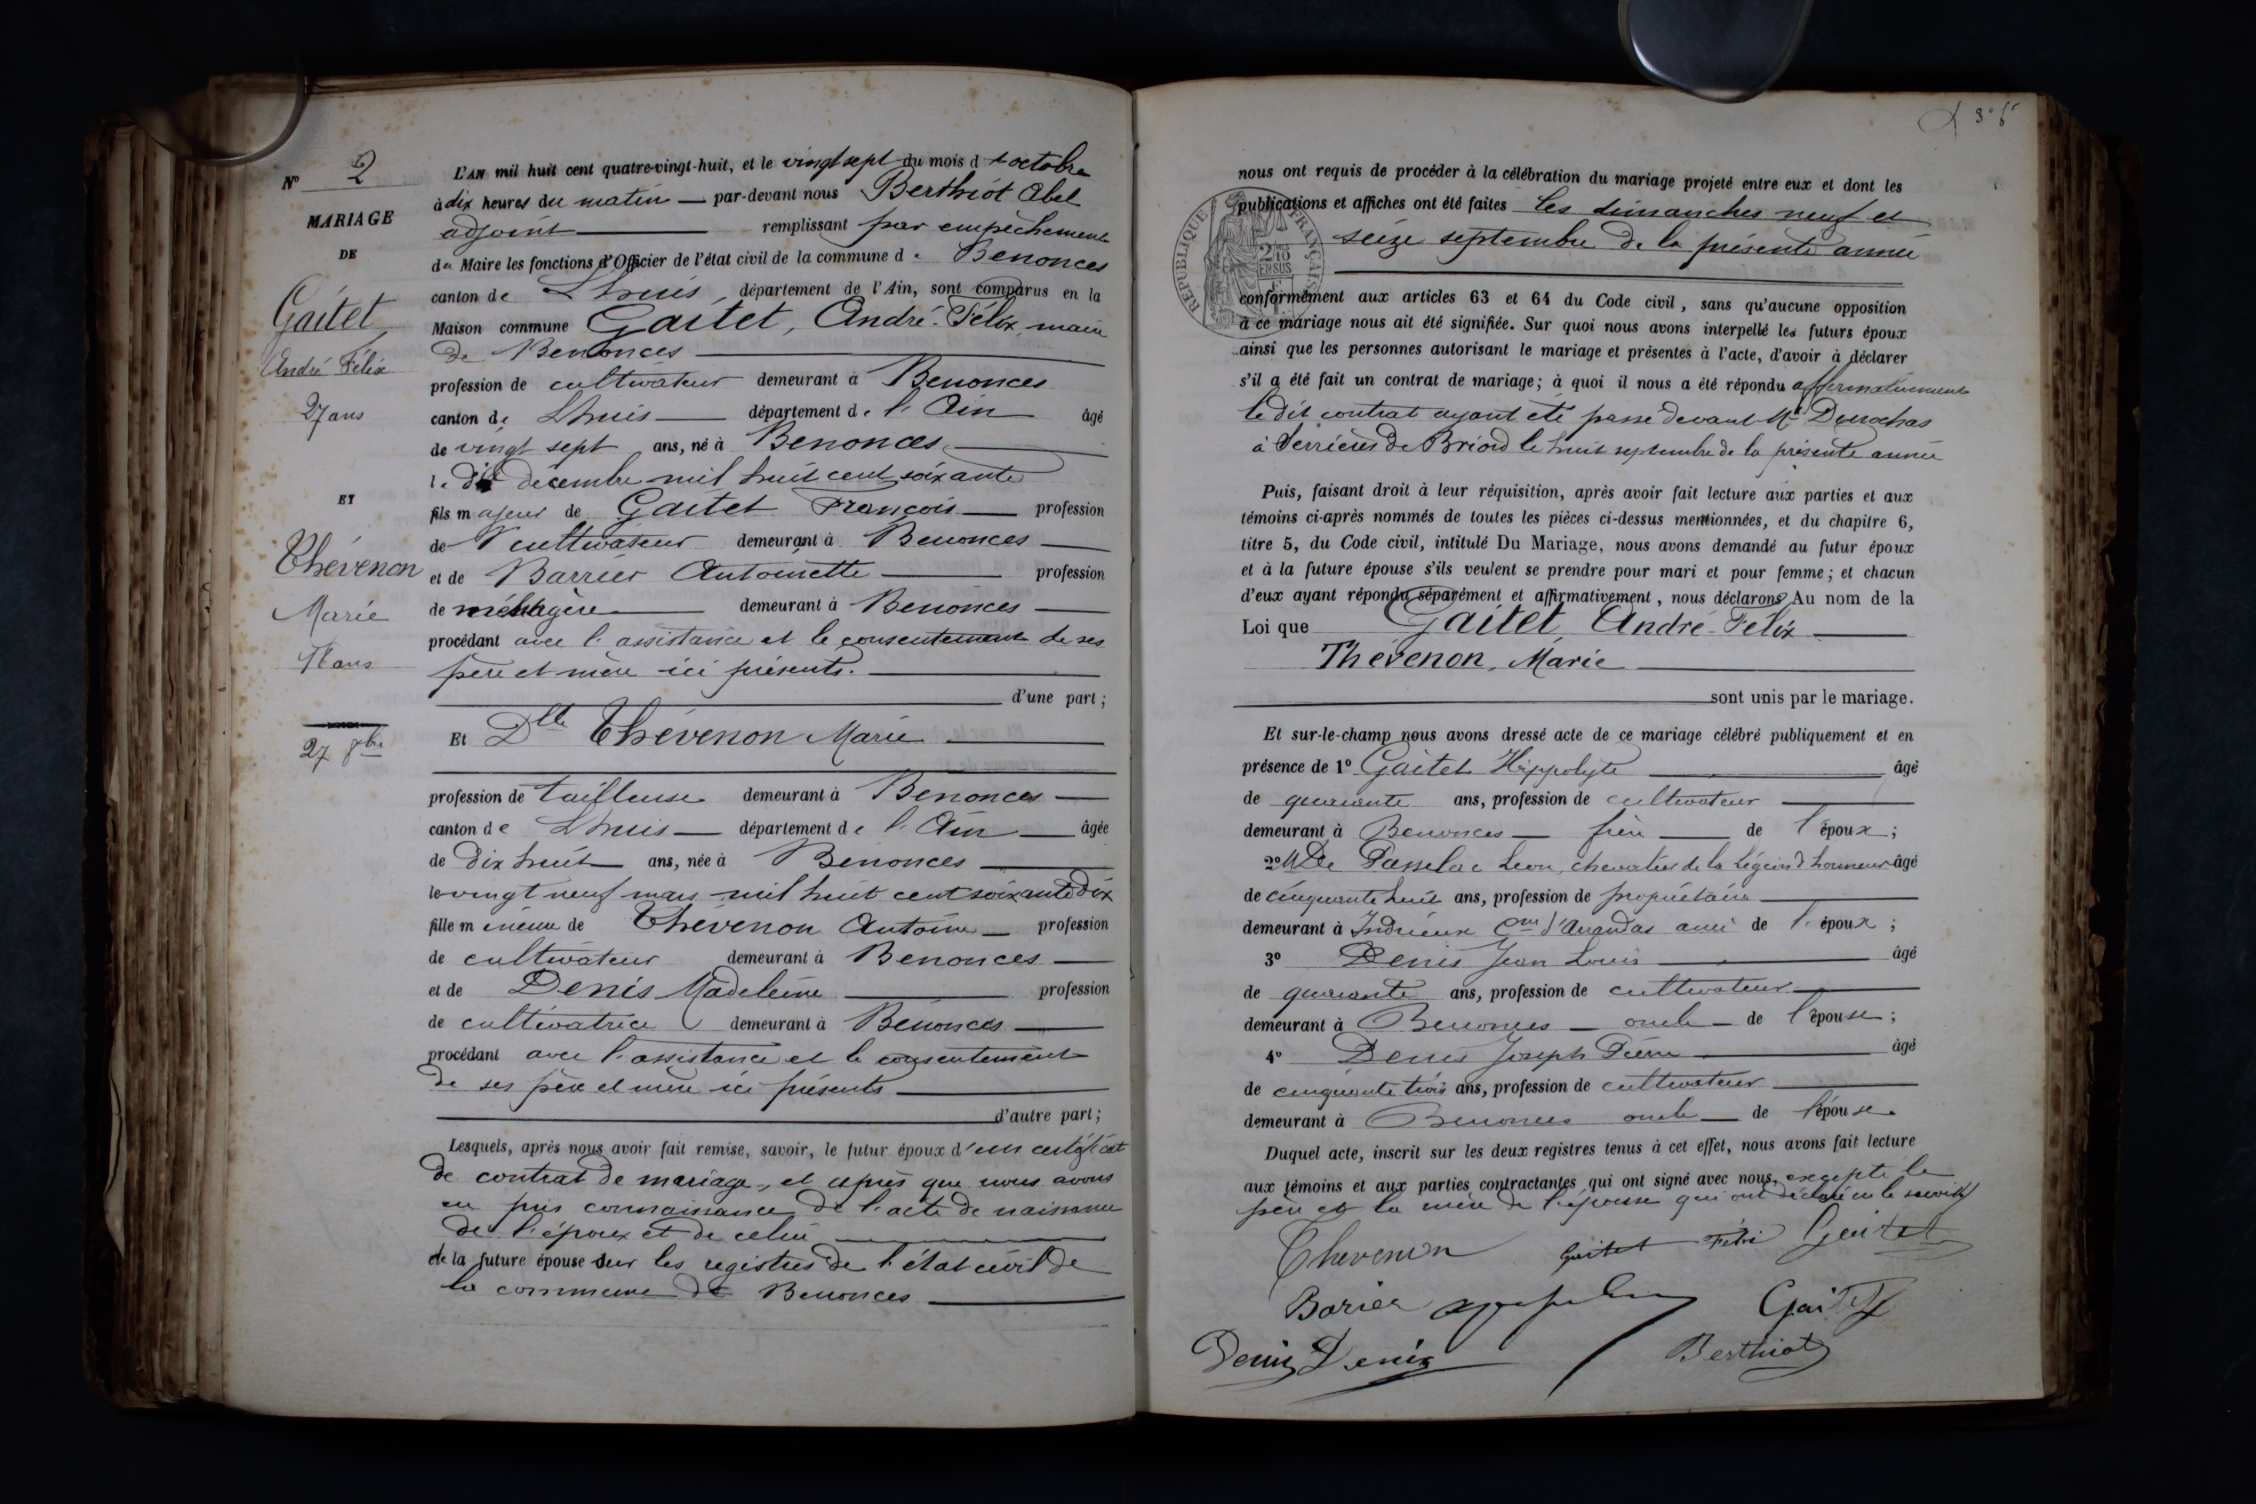 N° 2
MARIAGE
DE
Gaitet
André Félix
27 ans
ET
Thévenon
Marie
18 ans
27 8bre
L'AN mil huit cent quatre-vingt-huit, et le vingt sept du mois d'octobre
à dix heures du matin par-devant nous Berthiot Abel
adjoint remplissant par empêchement
du Maire les fonctions d'Officier de l'état civil de la commune de Benonces
canton de Lhuis, département de l'Ain, sont comparus en la
Maison commune Gaitet, André-Félix, maire
de Benonces
profession de cultivateur demeurant à Benonces
canton de Lhuis département de l'Ain âgé
de vingt sept ans, né à Benonces
le dix décembre mil huit cent soixante
fils majeur de Gaitet François profession
de cultivateur demeurant à Benonces
et de Barrier Antoinette profession
de ménagère demeurant à Benonces
procédant avec l'assistance et le consentement de ses
père et mère ici présents.
d'une part;
Et Dlle Thévenon Marie
profession de tailleuse demeurant à Benonces
canton de Lhuis département de l'Ain âgée
de dix huit ans, née à Benonces
le vingt neuf mars mil huit cent soixante dix
fille mineure de Thévenon Antoine profession
de cultivateur demeurant à Benonces
et de Denis Madeleine profession
de cultivatrice demeurant à Benonces
procédant avec l'assistance et le consentement
de ses père et mère ici présents
d'autre part;
Lesquels, après nous avoir fait remise, savoir, le futur époux d'un certificat
de contrat de mariage, et après que nous avons
eu pris connaissance de l'acte de naissance
de l'époux et de celui
de la future épouse sur les registres de l'état civil de
la commune de Benonces
nous ont requis de procéder à la célébration du mariage projeté entre eux et dont les
publications et affiches ont été faites les dimanches neuf et
seize septembre de la présente année
RÉPUBLIQUE FRANÇAISE
conformément aux articles 63 et 64 du Code civil, sans qu'aucune opposition
à ce mariage nous ait été signifiée. Sur quoi nous avons interpellé les futurs époux
ainsi que les personnes autorisant le mariage et présentes à l'acte, d'avoir à déclarer
s'il a été fait un contrat de mariage; à quoi il nous a été répondu affirmativement
le dit contrat ayant été passé devant Me Durochas
à Serrières de Briord le huit septembre de la présente année
Puis, faisant droit à leur réquisition, après avoir fait lecture aux parties et aux
témoins ci-après nommés de toutes les pièces ci-dessus mentionnées, et du chapitre 6,
titre 5, du Code civil, intitulé Du Mariage, nous avons demandé au futur époux
et à la future épouse s'ils veulent se prendre pour mari et pour femme; et chacun
d'eux ayant répondu séparément et affirmativement, nous déclarons Au nom de la
Loi que Gaitet André-Félix
Thévenon, Marie
sont unis par le mariage.
Et sur-le-champ nous avons dressé acte de ce mariage célébré publiquement et en
présence de 1° Gaitet Hippolyte âgé
de quarante ans, profession de cultivateur
demeurant à Benonces frère de l'époux;
2° De Léon, chevalier de la légion d'honneur âgé
de cinquante huit ans, profession de propriétaire
demeurant à Indrieux Cne d'Arandas ami de l'époux;
3° Denis Jean Louis âgé
de quarante ans, profession de cultivateur
demeurant à Benonces oncle de l'épouse;
4° Denis Joseph Pierre âgé
de cinquante trois ans, profession de cultivateur
demeurant à Benonces oncle de l'épouse
Duquel acte, inscrit sur les deux registres tenus à cet effet, nous avons fait lecture
aux témoins et aux parties contractantes qui ont signé avec nous, excepté le
père et la mère de l'épouse qui ont déclaré ne le savoir
Thevenon Gaitet Félix Gaitet
Barier Gaitet
Denis Denis Berthiot